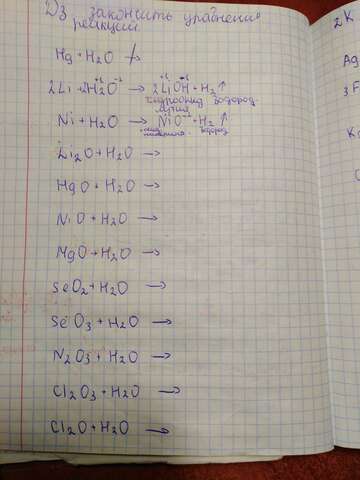 ДЗ закончить уравнения
реакции
Hg + H₂O ↛
2Li + 2H₂O → 2LiOH + H₂↑
гидроксид водород
лития
Ni + H₂O → NiO + H₂↑
водород
Li₂O + H₂O →
HgO + H₂O →
NiO + H₂O →
MgO + H₂O →
SeO₂ + H₂O →
SeO₃ + H₂O →
N₂O₃ + H₂O →
Cl₂O₃ + H₂O →
Cl₂O + H₂O →
2K
Ag
3F